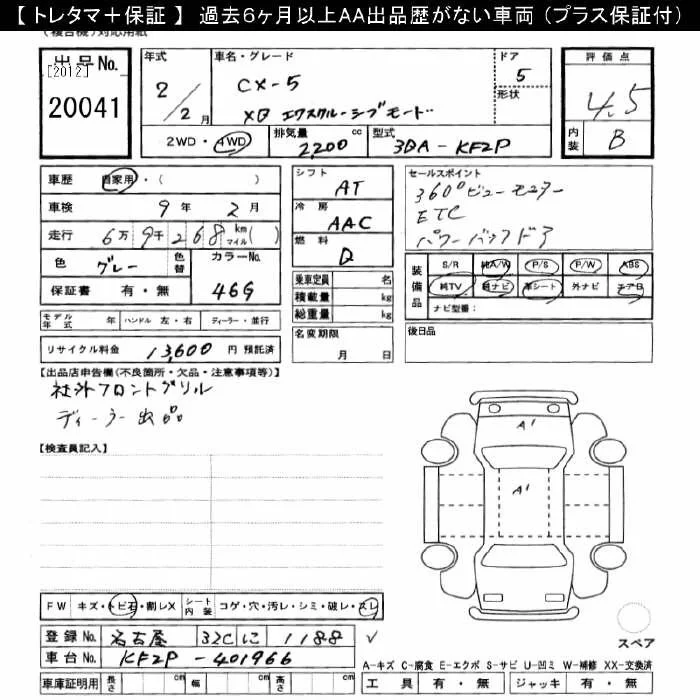 【 トレタマ＋保証 】 過去6ヶ月以上AA出品歴がない車両（プラス保証付）
(複合機)対応用紙
出品No.
[2012]
20041
年式 2/2月
車名・グレード
CX-5
XD エクスクルーシブモード
ドア 5
形状
評価点
4.5
内装 B
2WD・4WD 排気量 2,200 cc 型式 3DA-KF2P
車歴 自家用・( )
車検 9年 2月
走行 6万9千268 km マイル( )
色 グレー 色替 カラーNo. 46G
保証書 有・無
シフト AT
冷房 AAC
燃料 D
乗車定員 名
積載量 kg
総重量 kg
名変期限
月 日
セールスポイント
360°ビューモニター
ETC
パワーバックドア
装備品
S/R 純A/W P/S P/W ABS
純TV 純ナビ 革シート 外ナビ エアB
ナビ型番：
後日品
モデル年式 年 ハンドル 左・右 ディーラー・並行
リサイクル料金 13,600 円 預託済
【出品店申告欄(不良箇所・欠品・注意事項等)】
社外フロントグリル
ディーラー出品
【検査員記入】
A1
A1
FW キズ・トビ石・割レX シート内装 コゲ・穴・汚レ・シミ・破レ・スレ
登録No. 名古屋 32C に 1188
車台No. KF2P-401966
車庫証明用 長さ cm 幅 cm 高さ cm
スペア
A-キズ C-腐食 E-エクボ S-サビ U-凹ミ W-補修 XX-交換済
工具 有・無 ジャッキ 有・無